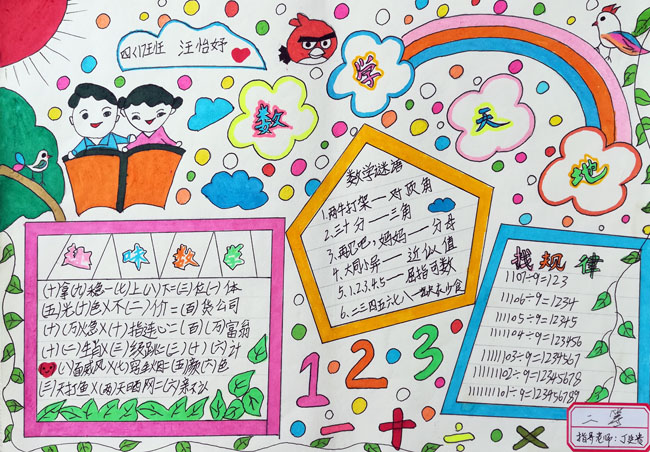 四(1)班 汪怡妤
数
学
天
地
趣味数学
(十)拿(九)稳-(七)上(八)下=(三)位(一)体
(五)光(十)色×不(二)价=(百)货公司
(十)(万)火急×(十)指连心=(百)(万)富翁
(十)(二)生肖×(三)级跳=(三)(十)(六)计
(八)面威风×(七)
(三)天打鱼×(两)天晒网=(六)亲不认
数学谜语
1.两牛打架——对顶角
2.三十分——三角
3.再见吧,妈妈——分母
4.大同小异——近似值
5.1.2.3.4.5——屈指可数
6.二三四五六七八
找规律
1107÷9=123
11106÷9=1234
111105÷9=12345
1111104÷9=123456
11111103÷9=1234567
111111102÷9=12345678
1111111101÷9=123456789
1 2 3
- + ÷ ×
二等
指导老师:丁